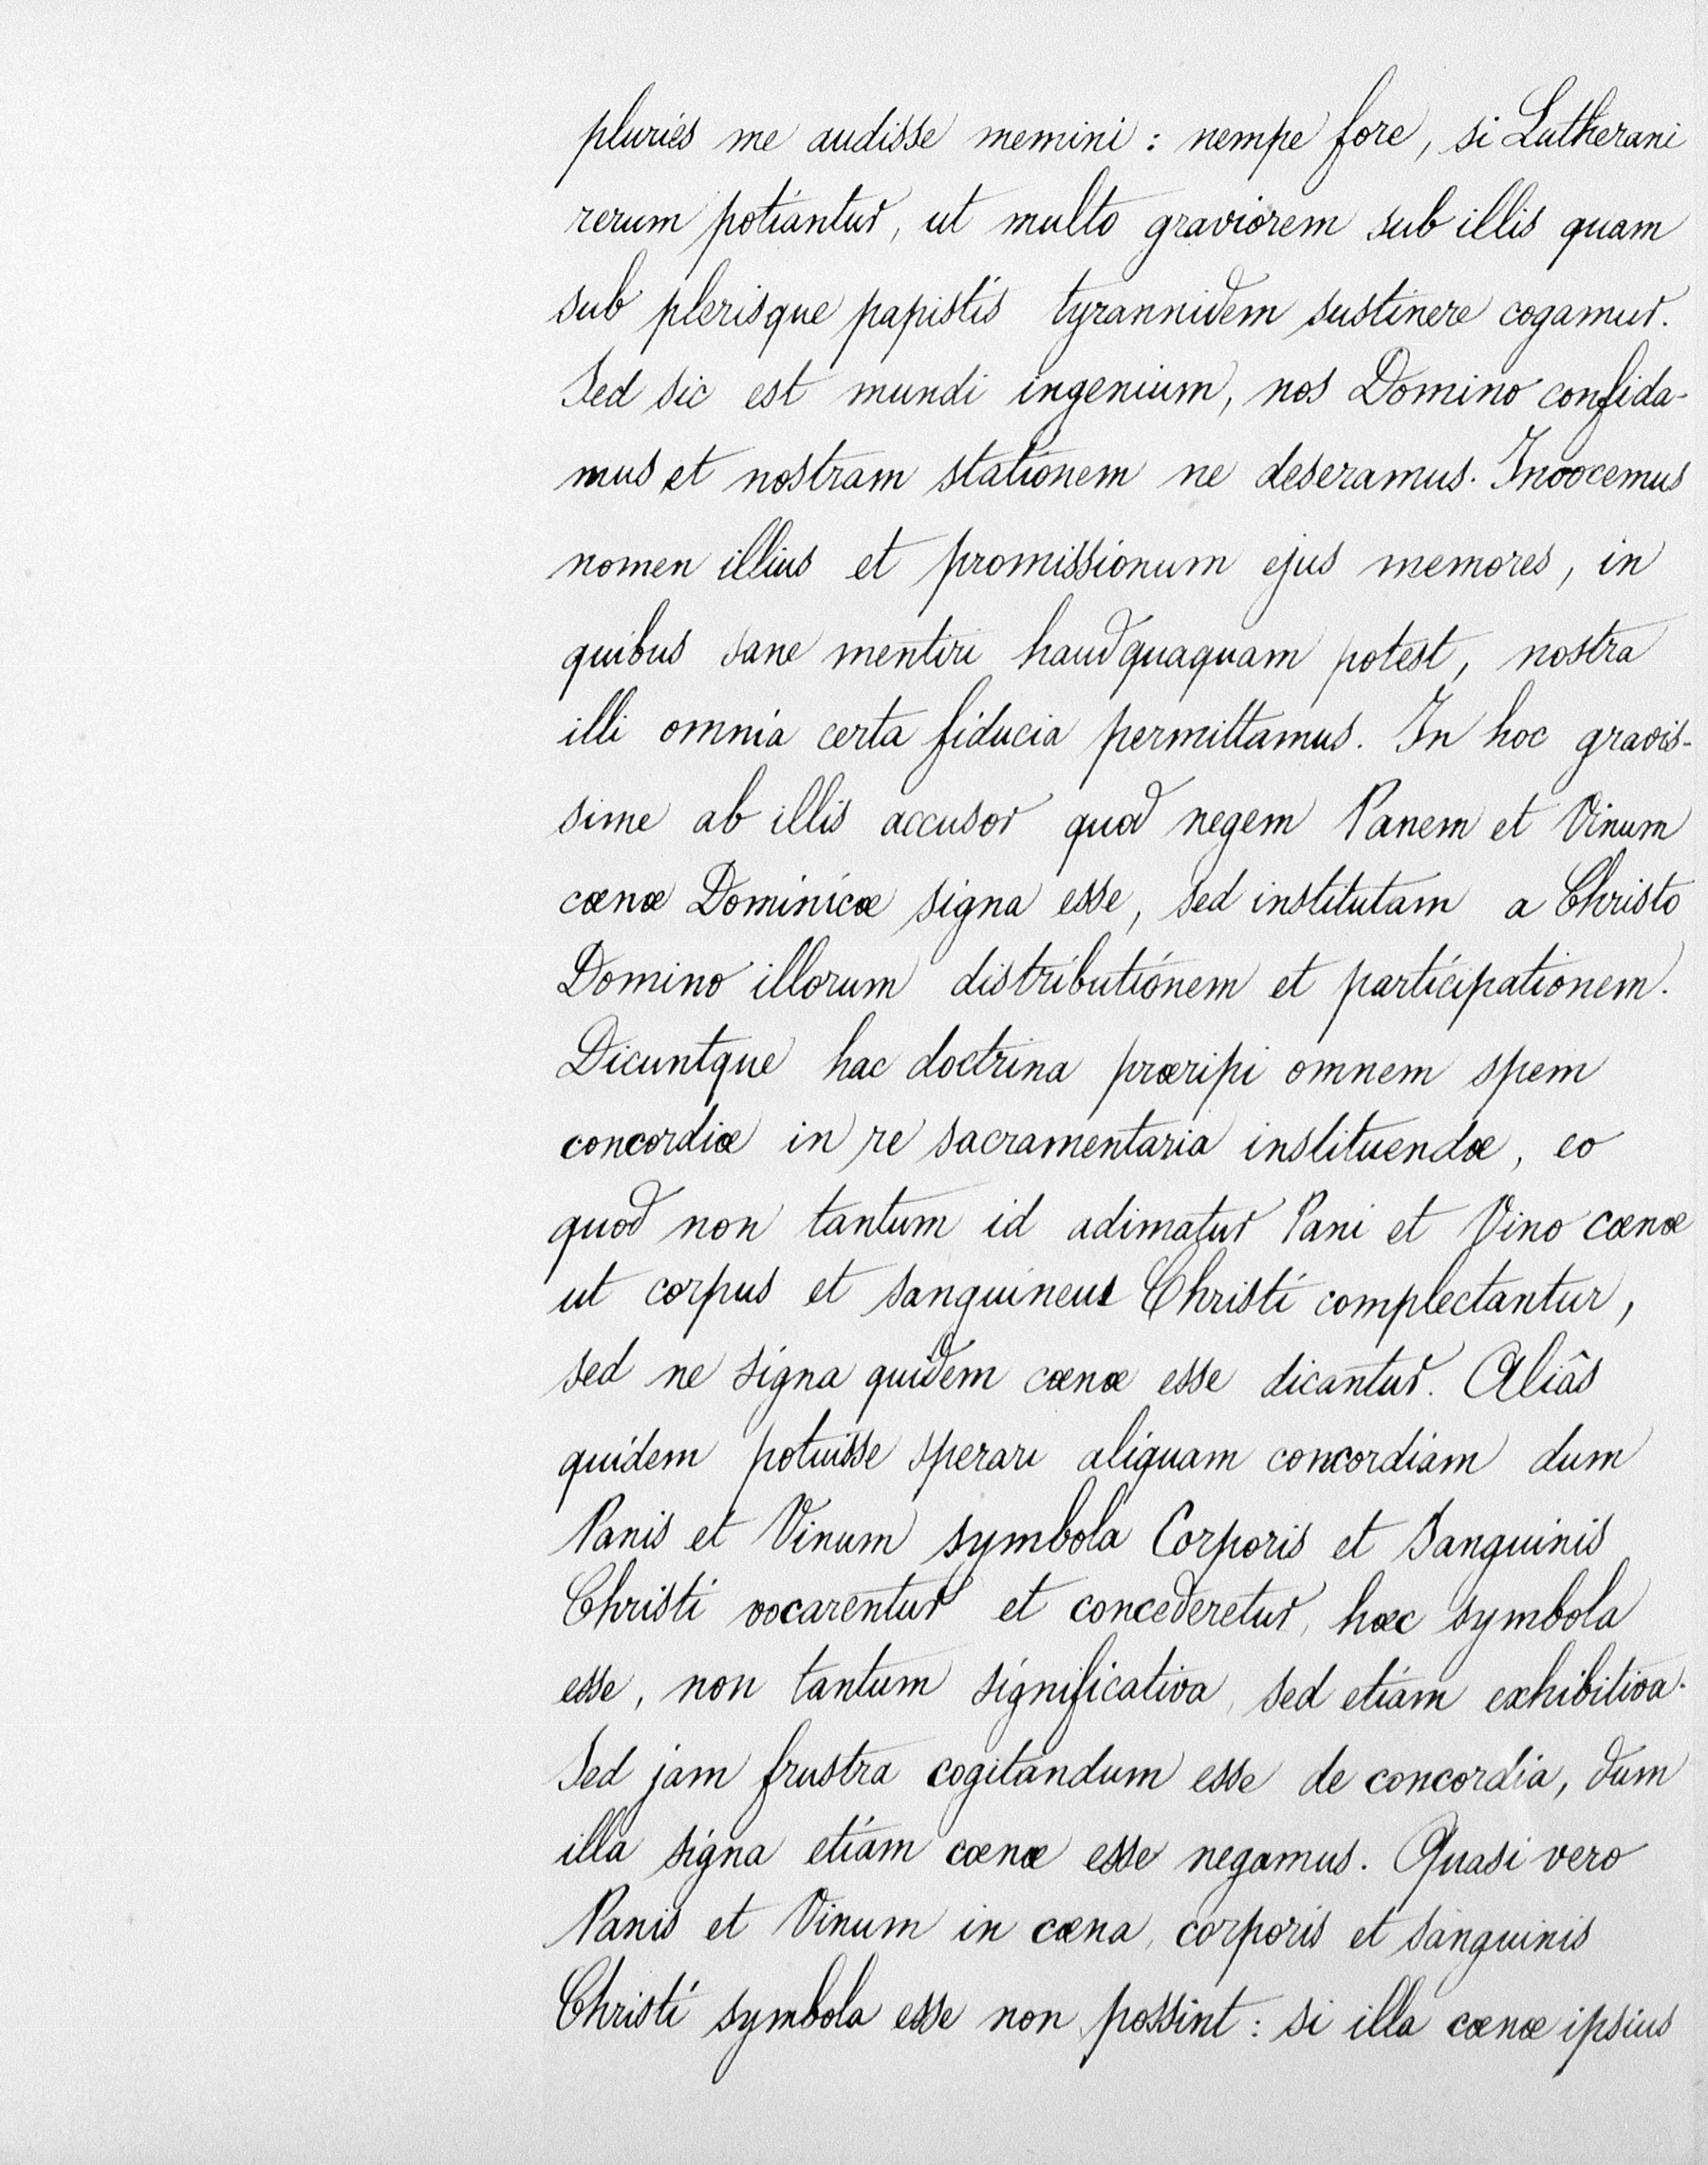 pluries me audisse memini : nempe fore, si Lutherani
rerum potiantur, ut multo graviorem sub illis quam
sub plerisque papistis tyrannidem sustinere cogamur.
Sed sic est mundi ingenium, nos Domino confida-
mus et nostram stationem ne deseramus. Invocemus
nomen illius et promissionum ejus memores, in
quibus sane mentiri haudquaquam potest, nostra
illi omnia certa fiducia permittamus. In hoc gravis-
sime ab illis accusor quod negem Panem et Vinum
cœnæ Dominicæ signa esse, sed institutam a Christo
Domino illorum distributionem et participationem.
Dicuntque hac doctrina præripi omnem spem
concordiæ in re sacramentaria instituendæ, eo
quod non tantum id adimatur Pani et Vino cœnæ
ut corpus et sanguineus Christi complectantur,
sed ne signa quidem cœnæ esse dicantur. Aliâs
quidem potuisse sperari aliquam concordiam dum
Panis et Vinum symbola Corporis et Sanguinis
Christi vocarentur et concederetur, hæc symbola
esse, non tantum significativa, sed etiam exhibitiva.
Sed jam frustra cogitandum esse de concordia, dum
illa signa etiam cœnæ esse negamus. Quasi vero
Panis et Vinum in cœna, corporis et sanguinis
Christi symbola esse non possint : si illa cœnæ ipsius